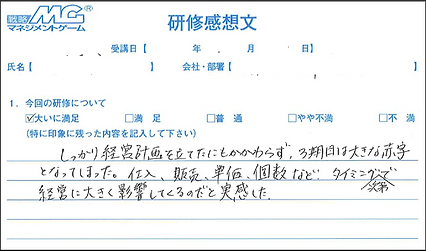 戦略MG
マネジメントゲーム
研修感想文
受講日【 年 月 日】
氏名【 】 会社・部署【 】
1. 今回の研修について
☑大いに満足 □満 足 □普 通 □やや不満 □不 満
(特に印象に残った内容を記入して下さい)
しっかり経営計画を立てたにもかかわらず、3期目は大きな赤字
となってしまった。仕入、販売、単価、個数など タイミング次第で
経営に大きく影響してくるのだと実感した。